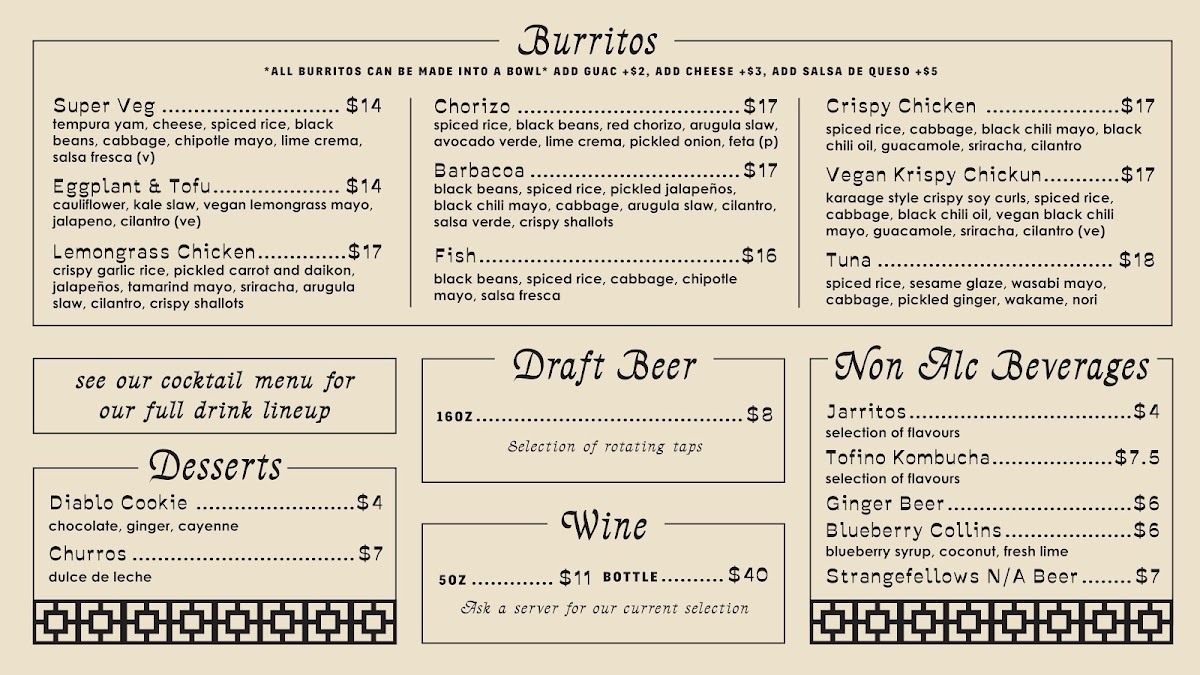 Burritos
*ALL BURRITOS CAN BE MADE INTO A BOWL* ADD GUAC +$2, ADD CHEESE +$3, ADD SALSA DE QUESO +$5
Super Veg .................................. $14
tempura yam, cheese, spiced rice, black
beans, cabbage, chipotle mayo, lime crema,
salsa fresca (v)
Eggplant & Tofu........................ $14
cauliflower, kale slaw, vegan lemongrass mayo,
jalapeno, cilantro (ve)
Lemongrass Chicken.................$17
crispy garlic rice, pickled carrot and daikon,
jalapeños, tamarind mayo, sriracha, arugula
slaw, cilantro, crispy shallots
Chorizo ..........................................$17
spiced rice, black beans, red chorizo, arugula slaw,
avocado verde, lime crema, pickled onion, feta (p)
Barbacoa ........................................$17
black beans, spiced rice, pickled jalapeños,
black chili mayo, cabbage, arugula slaw, cilantro,
salsa verde, crispy shallots
Fish.................................................$16
black beans, spiced rice, cabbage, chipotle
mayo, salsa fresca
Crispy Chicken .........................$17
spiced rice, cabbage, black chili mayo, black
chili oil, guacamole, sriracha, cilantro
Vegan Krispy Chickun..............$17
karaage style crispy soy curls, spiced rice,
cabbage, black chili oil, vegan black chili
mayo, guacamole, sriracha, cilantro (ve)
Tuna ............................................ $18
spiced rice, sesame glaze, wasabi mayo,
cabbage, pickled ginger, wakame, nori
see our cocktail menu for
our full drink lineup
Desserts
Diablo Cookie .............................$4
chocolate, ginger, cayenne
Churros .........................................$7
dulce de leche
Draft Beer
16OZ..................................................$8
Selection of rotating taps
Wine
5OZ ............... $11 BOTTLE............ $40
Ask a server for our current selection
Non Alc Beverages
Jarritos..........................................$4
selection of flavours
Tofino Kombucha.......................$7.5
selection of flavours
Ginger Beer..................................$6
Blueberry Collins........................$6
blueberry syrup, coconut, fresh lime
Strangefellows N/A Beer......... $7